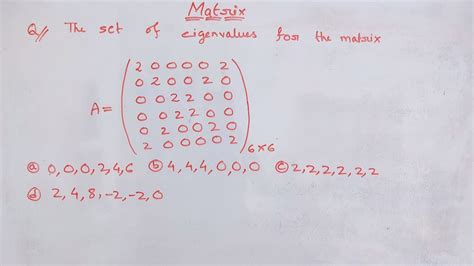 Matrix
Q// The set of eigenvalues for the matrix
2 0 0 0 0 2
0 2 0 0 2 0
A= 0 0 2 2 0 0
0 0 2 2 0 0
0 2 0 0 2 0
2 0 0 0 0 2 6×6
ⓐ 0,0,0,2,4,6 ⓑ 4,4,4,0,0,0 ⓒ 2,2,2,2,2,2
ⓓ 2,4,8,-2,-2,0